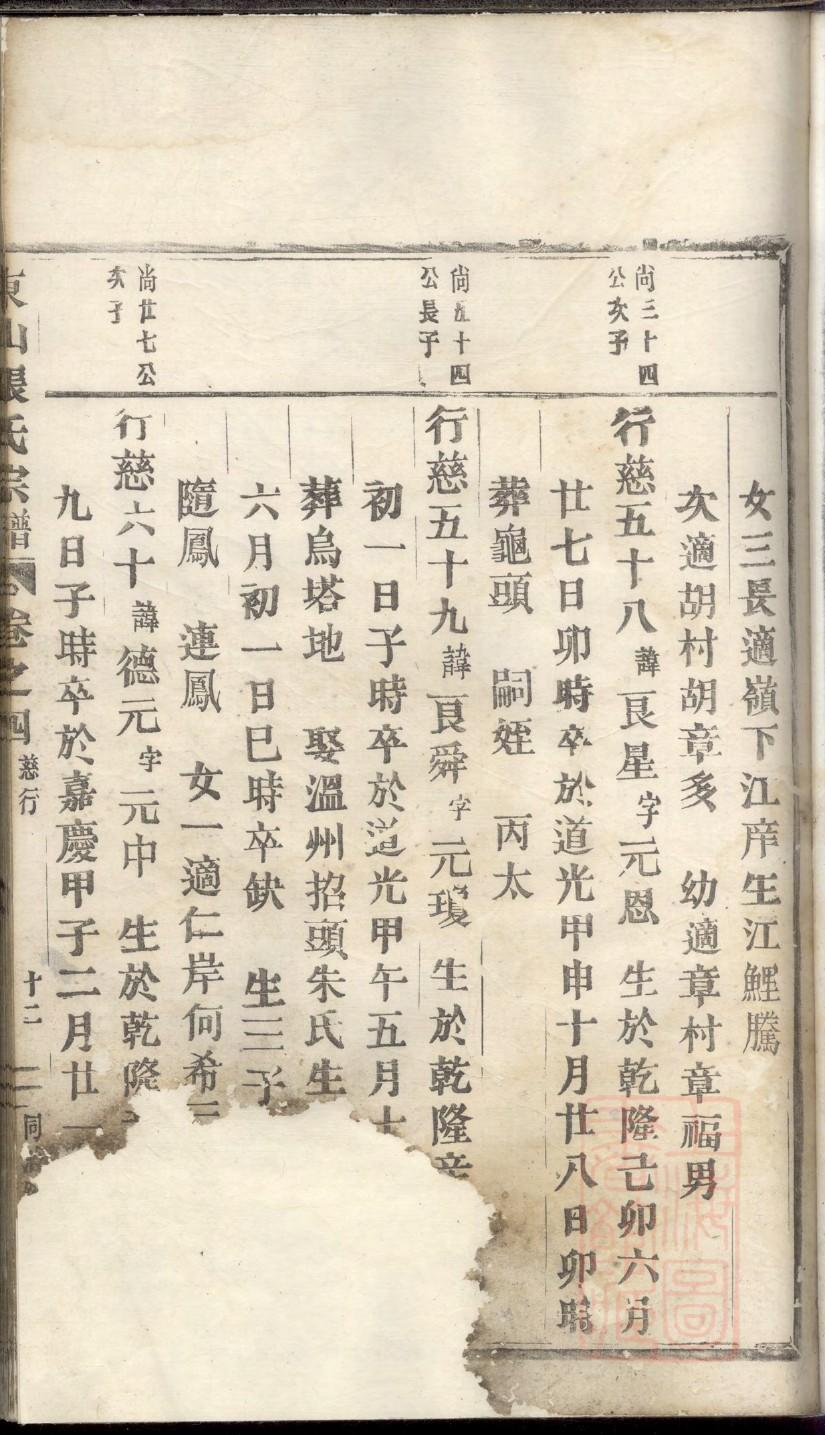 女三長適嶺下江庠生江鯉騰
次適胡村胡章多 幼適章村章福男
尚三十四公次子
行慈五十八諱艮星字元恩 生於乾隆己卯六月
廿七日卯時卒於道光甲申十月廿八日卯時
葬龜頭 嗣姪 丙太
尚五十四公長子
行慈五十九諱艮舜字元瓊 生於乾隆辛
初一日子時卒於道光甲午五月十
葬烏塔地 娶溫州招頭朱氏生
六月初一日巳時卒缺 生三子
隨鳳 連鳳 女一適仁岸何希
尚廿七公次子
行慈六十諱德元字元中 生於乾隆
九日子時卒於嘉慶甲子二月廿一
東山張氏宗譜 卷之四 慈行 十二 同